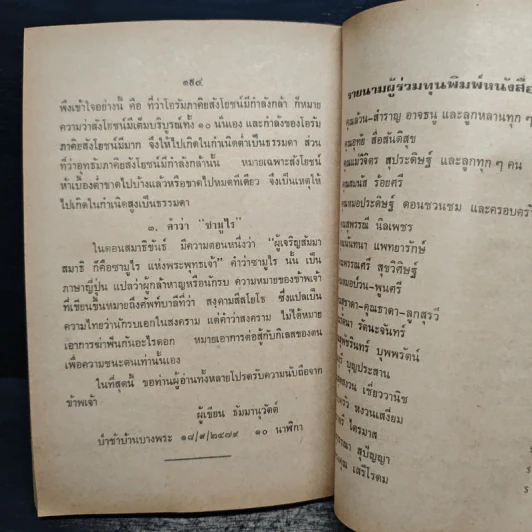 ๑๙๔
พึงเข้าใจอย่างนี้ คือ ที่ว่าโอรัมภาคิยสังโยชน์มีกำลังกล้า ก็หมาย
ความว่าสังโยชน์มีเต็มบริบูรณ์ทั้ง ๑๐ นั่นเอง และกำลังของโอรัม
ภาคิยสังโยชน์มีมาก จึงให้ไปเกิดในกำเนิดต่ำเป็นธรรมดา ส่วน
ที่ว่าอุทธัมภาคิยสังโยชน์มีกำลังกล้านั้น หมายเฉพาะสังโยชน์
ห้าเบื้องต่ำขาดไปบ้างแล้วหรือขาดไปหมดทีเดียว จึงเป็นเหตุให้
ไปเกิดในกำเนิดสูงเป็นธรรมดา
๓. คำว่า “ซามูไร”
ในตอนสมาธิขันธ์ มีความตอนหนึ่งว่า “ผู้เจริญสัมมา
สมาธิ ก็คือซามูไร แห่งพระพุทธเจ้า” คำว่าซามูไร นั้น เป็น
ภาษาญี่ปุ่น แปลว่าผู้กล้าหาญหรือนักรบ ความหมายของข้าพเจ้า
ที่เขียนขึ้นหมายถึงศัพท์บาลีที่ว่า สงฺคามสีสโยโธ ซึ่งแปลเป็น
ความไทยว่านักรบเอกในสงคราม แต่คำว่าสงคราม ไม่ได้หมาย
เอาการฆ่าฟันกันอะไรดอก หมายเอาการต่อสู้กับกิเลสของตน
เพื่อความชนะตนเท่านั้นเอง
ในที่สุดนี้ ขอท่านผู้อ่านทั้งหลายโปรดรับความนับถือจาก
ข้าพเจ้า
ผู้เขียน ธัมมานุวัตต์
ป่าช้าบ้านบางพระ ๑๘/๙/๒๔๗๙ ๑๐ นาฬิกา
รายนามผู้ร่วมทุนพิมพ์หนังสือ
คุณล้วน-สำราญ อาจธนู และลูกหลานทุก ๆ
คุณอุทัย สื่อสันติสุข
คุณแม่วิจิตร สุประดิษฐ์ และลูกทุก ๆ คน
คุณมนัส ร้อยศรี
คุณหมอประดิษฐ์ ดอนชวนชม และครอบครัว
คุณสุพรรณี นิลเพชร
นันทนา แพทยารักษ์
พรรณศรี สุขวิศิษฐ์
หมอบ้วน-พูนศรี
สุชาดา-คุณธาดา-ลูกสุรวี
รัตนา รัตนะจันทร์
พัชรินทร์ บุพพรัตน์
บุญประสาน
สงวน เชี่ยววานิช
หงวนเสงี่ยม
ไตรมาส
สุปัญญา
เสรีโรดม